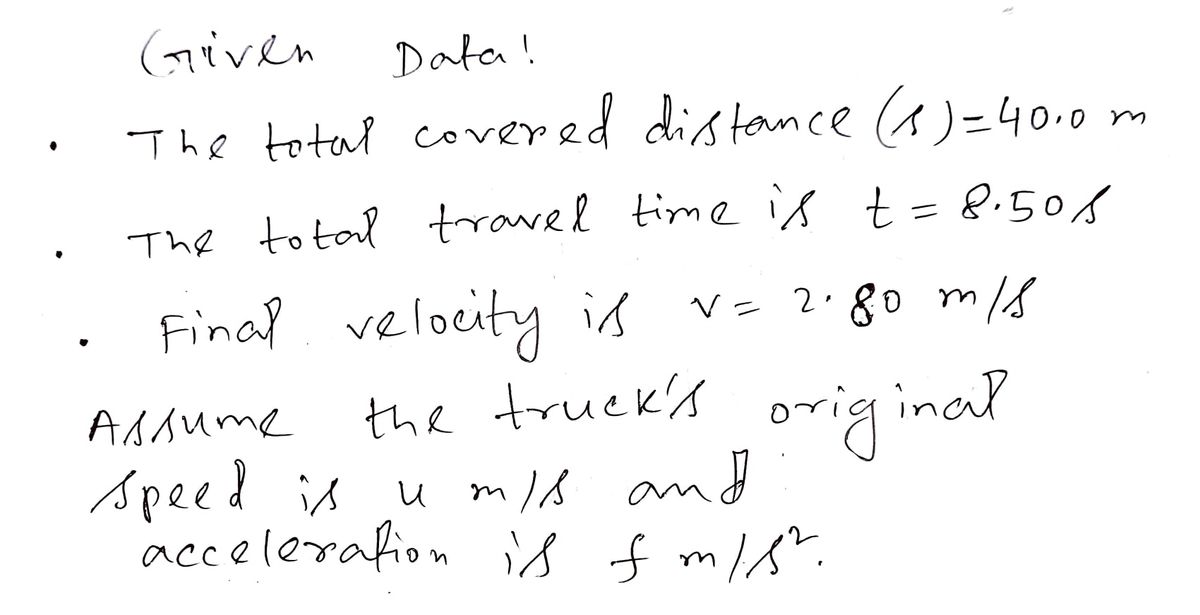 Given Data!
• The total covered distance (s)=40.0 m
• The total travel time is t = 8.50s
• Final velocity is v = 2.80 m/s
Assume the truck's original
speed is u m/s and
acceleration is f m/s².